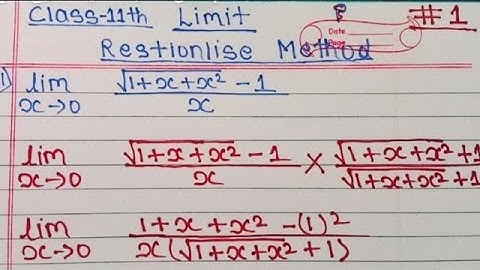 Class-11th Limit # 1
Date
Page
Restionlise Method
1) lim x→0 (√(1+x+x²) - 1)/x
lim x→0 (√(1+x+x²) - 1)/x × (√(1+x+x²) + 1)/(√(1+x+x²) + 1)
lim x→0 (1+x+x² - (1)²)/(x(√(1+x+x²) + 1))